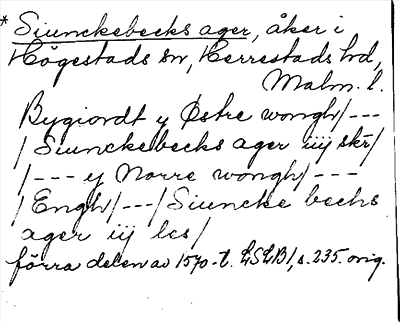 * Siunckebecks ager, åker i
Högestads sn, Herrestads hd,
Malm. l.
Bygiordt y Østre wongh/---
/Siunckebecks ager iiij skr/
/--- y Norre wongh/---
/Engh/---/Siuncke becks
ager iij lcs/
förra delen av 1570-t. LSLB1, s. 235. orig.